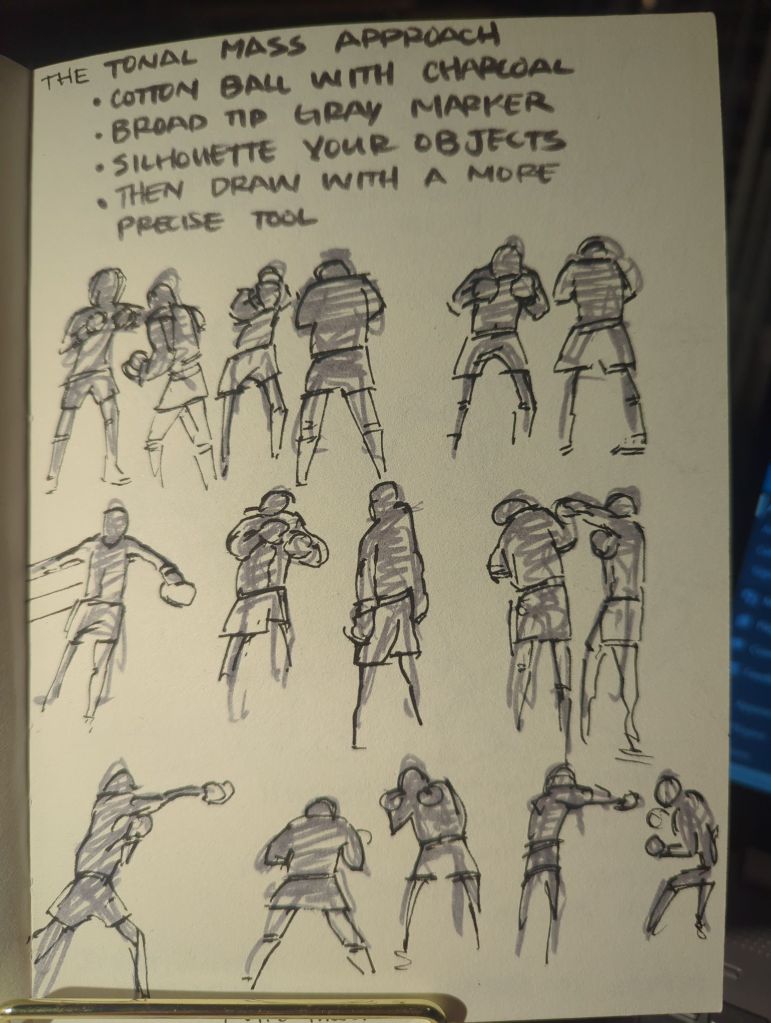 THE TONAL MASS APPROACH
• COTTON BALL WITH CHARCOAL
• BROAD TIP GRAY MARKER
• SILHOUETTE YOUR OBJECTS
• THEN DRAW WITH A MORE
PRECISE TOOL